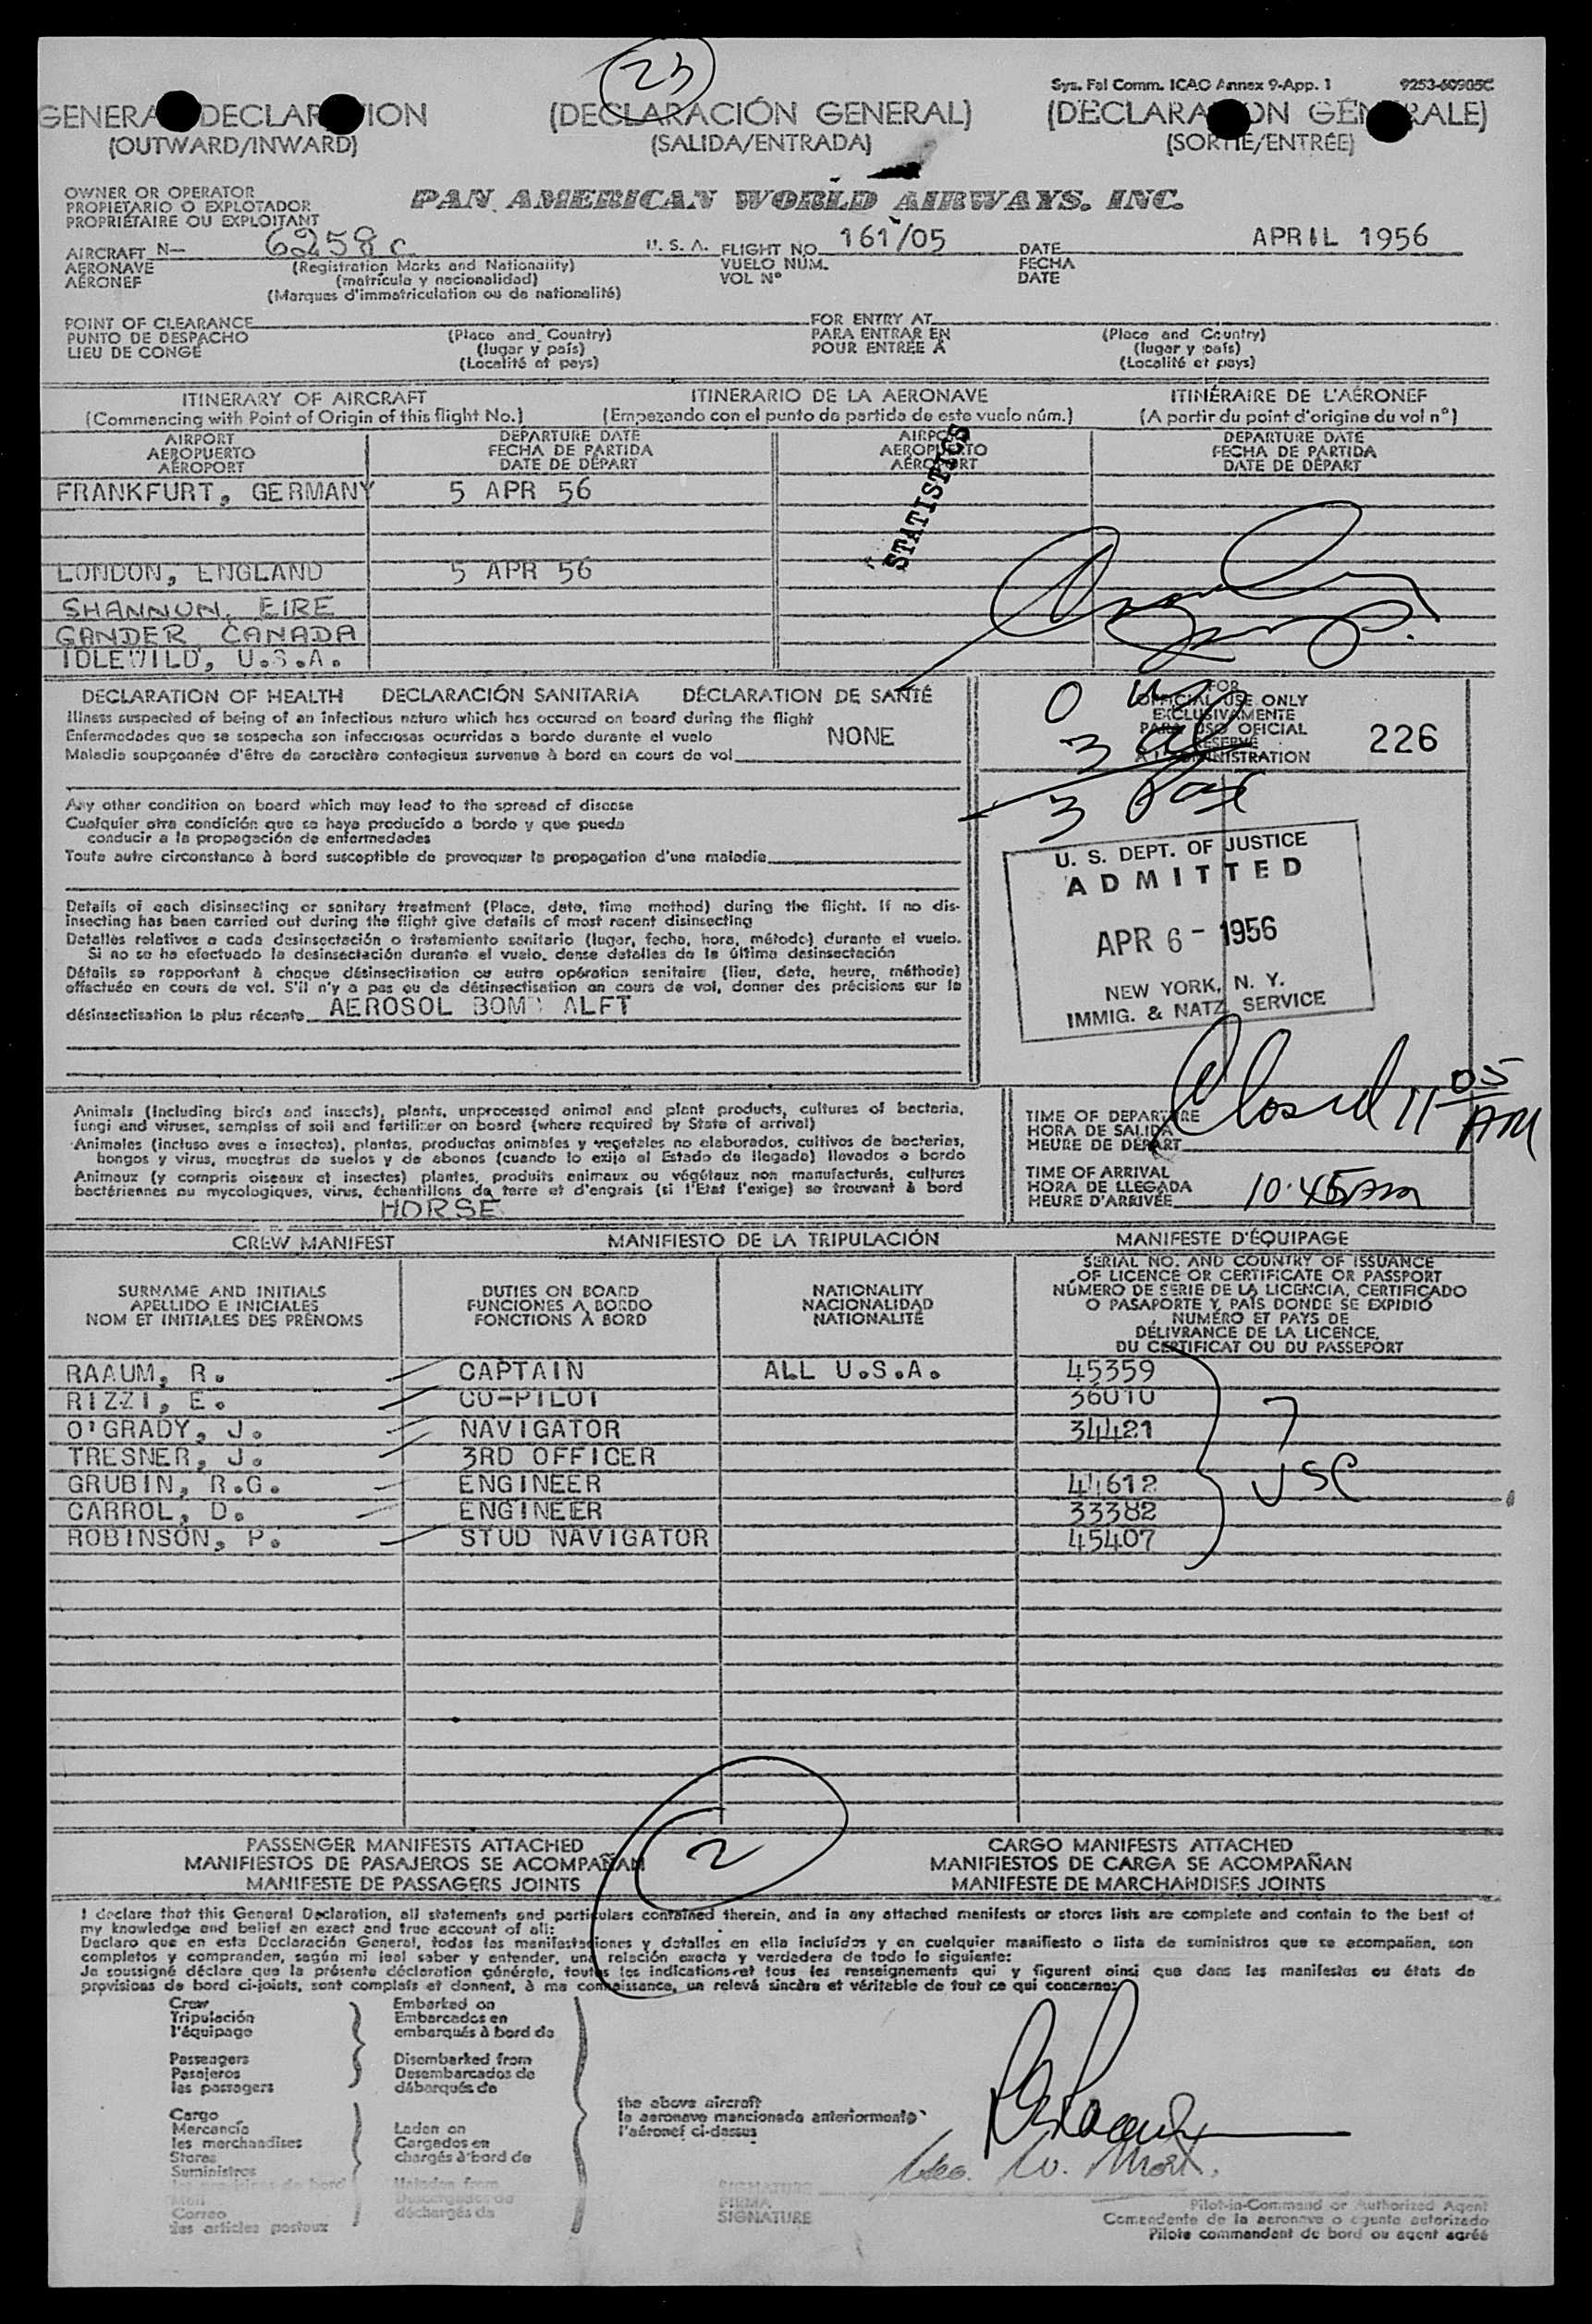 23
Sys. Fal Comm. ICAO Annex 9-App. 1 9253-60905C
GENERAL DECLARATION (DECLARACIÓN GENERAL) (DECLARATION GÉNÉRALE)
(OUTWARD/INWARD) (SALIDA/ENTRADA) (SORTIE/ENTRÉE)
OWNER OR OPERATOR
PROPIETARIO O EXPLOTADOR
PROPRIÉTAIRE OU EXPLOITANT
PAN AMERICAN WORLD AIRWAYS. INC.
AIRCRAFT N- 6258 C U. S. A. FLIGHT NO. 161/05 DATE APRIL 1956
AERONAVE (Registration Marks and Nationality) VUELO NÚM. FECHA
AÉRONEF (matrícula y nacionalidad) VOL N° DATE
(Marques d'immatriculation ou de nationalité)
POINT OF CLEARANCE FOR ENTRY AT
PUNTO DE DESPACHO (Place and Country) PARA ENTRAR EN (Place and Country)
LIEU DE CONGÉ (lugar y país) POUR ENTRÉE A (lugar y país)
(Localité et pays) (Localité et pays)
ITINERARY OF AIRCRAFT ITINERARIO DE LA AERONAVE ITINÉRAIRE DE L'AÉRONEF
(Commencing with Point of Origin of this flight No.) (Empezando con el punto de partida de este vuelo núm.) (A partir du point d'origine du vol n°)
AIRPORT DEPARTURE DATE AIRPORT DEPARTURE DATE
AEROPUERTO FECHA DE PARTIDA AEROPUERTO FECHA DE PARTIDA
AÉROPORT DATE DE DÉPART AÉROPORT DATE DE DÉPART
STATISTICS
FRANKFURT, GERMANY 5 APR 56
LONDON, ENGLAND 5 APR 56
SHANNON, EIRE
GANDER CANADA
IDLEWILD, U.S.A.
DECLARATION OF HEALTH DECLARACIÓN SANITARIA DÉCLARATION DE SANTÉ
Illness suspected of being of an infectious nature which has occured on board during the flight
Enfermedades que se sospecha son infecciosas ocurridas a bordo durante el vuelo NONE
Maladie soupçonnée d'être de caractère contagieux survenue à bord en cours de vol
Any other condition on board which may lead to the spread of disease
Cualquier otra condición que se haya producido a bordo y que pueda
conducir a la propagación de enfermedades
Toute autre circonstance à bord susceptible de provoquer la propagation d'une maladie
Details of each disinsecting or sanitary treatment (Place, date, time method) during the flight. If no dis-
insecting has been carried out during the flight give details of most recent disinsecting
Detalles relativos a cada desinsectación o tratamiento sanitario (lugar, fecha, hora, método) durante el vuelo.
Si no se ha efectuado la desinsectación durante el vuelo, dense detalles de la última desinsectación
Détails se rapportant à chaque désinsectisation ou autre opération sanitaire (lieu, date, heure, méthode)
effectuée en cours de vol. S'il n'y a pas eu de désinsectisation en cours de vol, donner des précisions sur la
désinsectisation la plus récente AEROSOL BOMB ALFT
0
3
3 Pax
FOR
OFFICIAL USE ONLY
EXCLUSIVAMENTE
PARA USO OFICIAL
RESERVÉ
A L'ADMINISTRATION
226
U. S. DEPT. OF JUSTICE
ADMITTED
APR 6 - 1956
NEW YORK, N. Y.
IMMIG. & NATZ. SERVICE
Closed 11 05 AM
Animals (Including birds and insects), plants, unprocessed animal and plant products, cultures of bacteria,
fungi and viruses, samples of soil and fertilizer on board (where required by State of arrival)
Animales (incluso aves e insectos), plantas, productos animales y vegetales no elaborados, cultivos de bacterias,
hongos y virus, muestras de suelos y de abonos (cuando lo exija el Estado de llegada) llevados a bordo
Animaux (y compris oiseaux et insectes) plantes, produits animaux ou végétaux non manufacturés, cultures
bactériennes ou mycologiques, virus, échantillons de terre et d'engrais (si l'Etat l'exige) se trouvant à bord
HORSE
TIME OF DEPARTURE
HORA DE SALIDA
HEURE DE DÉPART
TIME OF ARRIVAL
HORA DE LLEGADA
HEURE D'ARRIVÉE 10:45 AM
CREW MANIFEST MANIFIESTO DE LA TRIPULACIÓN MANIFESTE D'ÉQUIPAGE
SURNAME AND INITIALS
APELLIDO E INICIALES
NOM ET INITIALES DES PRÉNOMS
DUTIES ON BOARD
FUNCIONES A BORDO
FONCTIONS À BORD
NATIONALITY
NACIONALIDAD
NATIONALITÉ
SERIAL NO. AND COUNTRY OF ISSUANCE
OF LICENCE OR CERTIFICATE OR PASSPORT
NÚMERO DE SERIE DE LA LICENCIA, CERTIFICADO
O PASAPORTE Y PAÍS DONDE SE EXPIDIÓ
NUMÉRO ET PAYS DE
DÉLIVRANCE DE LA LICENCE,
DU CERTIFICAT OU DU PASSEPORT
RAAUM, R. CAPTAIN ALL U.S.A. 45359
RIZZI, E. CO-PILOT 36010
O'GRADY, J. NAVIGATOR 34421
TRESNER, J. 3RD OFFICER
GRUBIN, R.G. ENGINEER 44612
CARROL, D. ENGINEER 33382
ROBINSON, P. STUD NAVIGATOR 45407
7
USC
2
PASSENGER MANIFESTS ATTACHED CARGO MANIFESTS ATTACHED
MANIFIESTOS DE PASAJEROS SE ACOMPAÑAN MANIFIESTOS DE CARGA SE ACOMPAÑAN
MANIFESTE DE PASSAGERS JOINTS MANIFESTE DE MARCHANDISES JOINTS
I declare that this General Declaration, all statements and particulars contained therein, and in any attached manifests or stores lists are complete and contain to the best of
my knowledge and belief an exact and true account of all:
Declaro que en esta Declaración General, todas las manifestaciones y detalles en ella incluídos y en cualquier manifiesto o lista de suministros que se acompañan, son
completos y comprenden, según mi leal saber y entender, una relación exacta y verdadera de todo lo siguiente:
Je soussigné déclare que la présente déclaration générale, toutes les indications et tous les renseignements qui y figurent ainsi que dans les manifestes ou états de
provisions de bord ci-joints, sont complets et donnent, à ma connaissance, un relevé sincère et véritable de tout ce qui concerne:
Crew Embarked on
Tripulación Embarcados en
l'équipage embarqués à bord de
Passengers Disembarked from
Pasajeros Desembarcados de
les passagers débarqués de
Cargo
Mercancía
les merchandises
Stores
Suministros
les provisions de bord
Mail
Correo
les articles postaux
Laden on
Cargados en
chargés à bord de
Unladen from
Descargados de
déchargés de
the above aircraft
la aeronave mencionada anteriormente
l'aéronef ci-dessus
Geo. W.
SIGNATURE
FIRMA
SIGNATURE
Pilot-in-Command or Authorized Agent
Comandante de la aeronave o agente autorizado
Pilote commandant de bord ou agent agréé